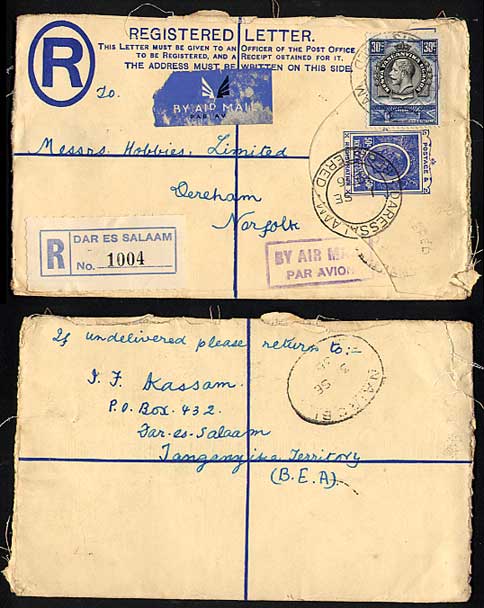 REGISTERED LETTER.
THIS LETTER MUST BE GIVEN TO AN OFFICER OF THE POST OFFICE
TO BE REGISTERED, AND A RECEIPT OBTAINED FOR IT.
THE ADDRESS MUST BE WRITTEN ON THIS SIDE.
R
30c 30c
To.
BY AIR MAIL
PAR AVION
Messrs. Hobbies, Limited
POSTAGE &
Dereham
Norfolk
DAR-ES-SALAAM
REGISTERED
R
DAR ES SALAAM
No. 1004
BY AIR MAIL
PAR AVION
If undelivered please return to:-
NAIROBI
3 SE
J. F. Kassam.
P.O. Box. 432.
Dar-es-Salaam
Tanganyika Territory
(B.E.A).